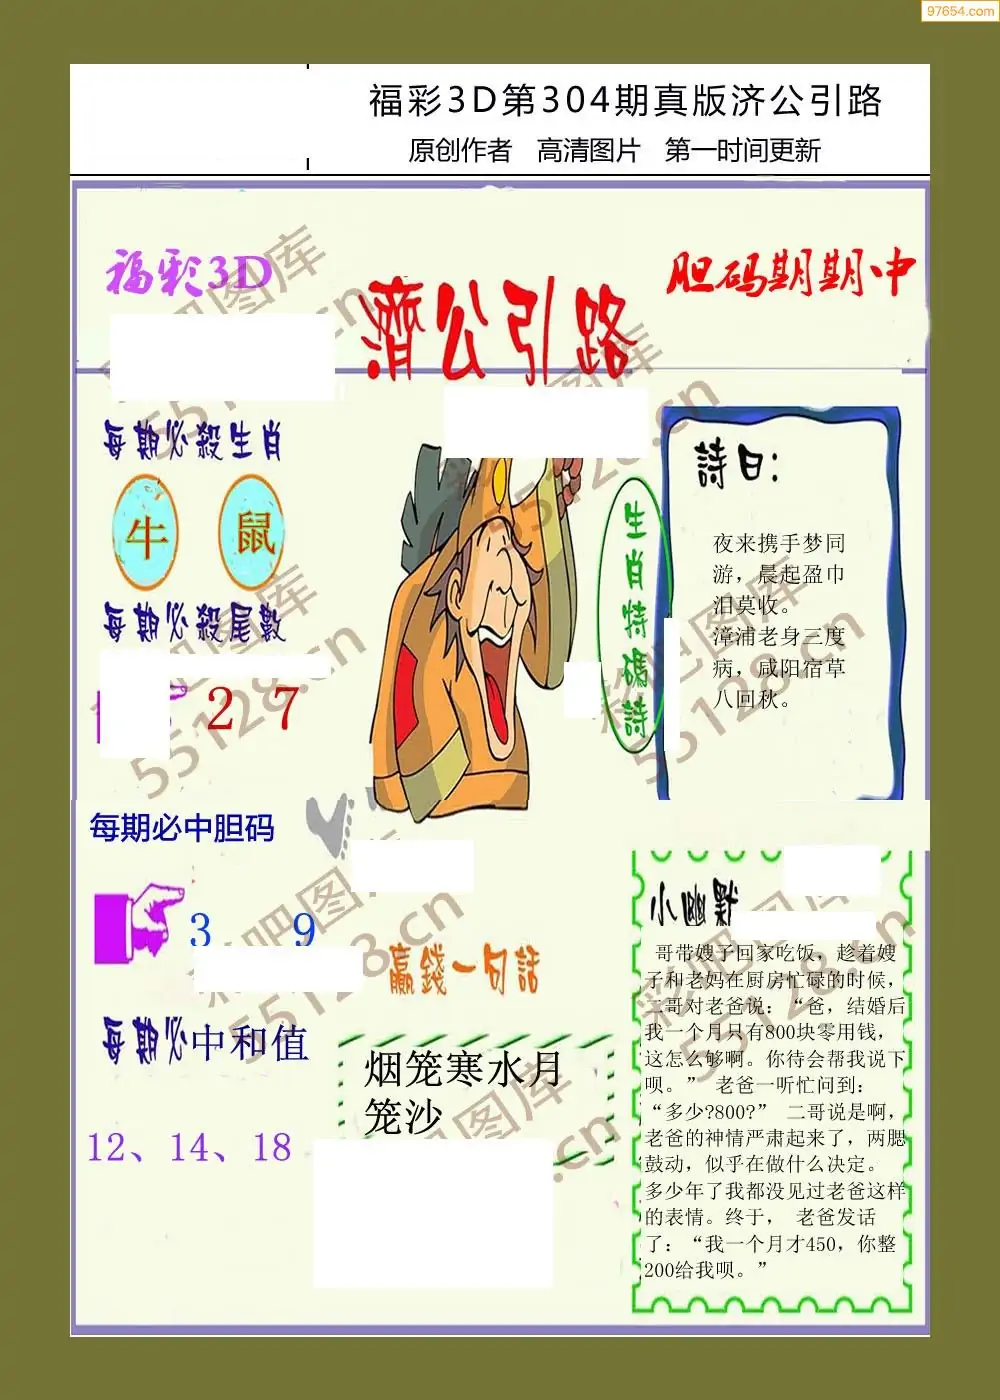 97654.com
福彩3D第304期真版济公引路
原创作者 高清图片 第一时间更新
福彩3D
濟公引路
胆码期期中
每期必殺生肖
牛 鼠
每期必殺尾數
2 7
生肖特碼詩
詩曰：
夜来携手梦同
游，晨起盈巾
泪莫收。
漳浦老身三度
病，咸阳宿草
八回秋。
每期必中胆码
3 9
赢錢一句話
每期必中和值
烟笼寒水月
笼沙
12、14、18
小幽默
哥带嫂子回家吃饭，趁着嫂
子和老妈在厨房忙碌的时候，
二哥对老爸说：“爸，结婚后
我一个月只有800块零用钱，
这怎么够啊。你待会帮我说下
呗。” 老爸一听忙问到：
“多少?800?” 二哥说是啊，
老爸的神情严肃起来了，两腮
鼓动，似乎在做什么决定。
多少年了我都没见过老爸这样
的表情。终于， 老爸发话
了：“我一个月才450，你整
200给我呗。”
彩吧图库
55128.cn